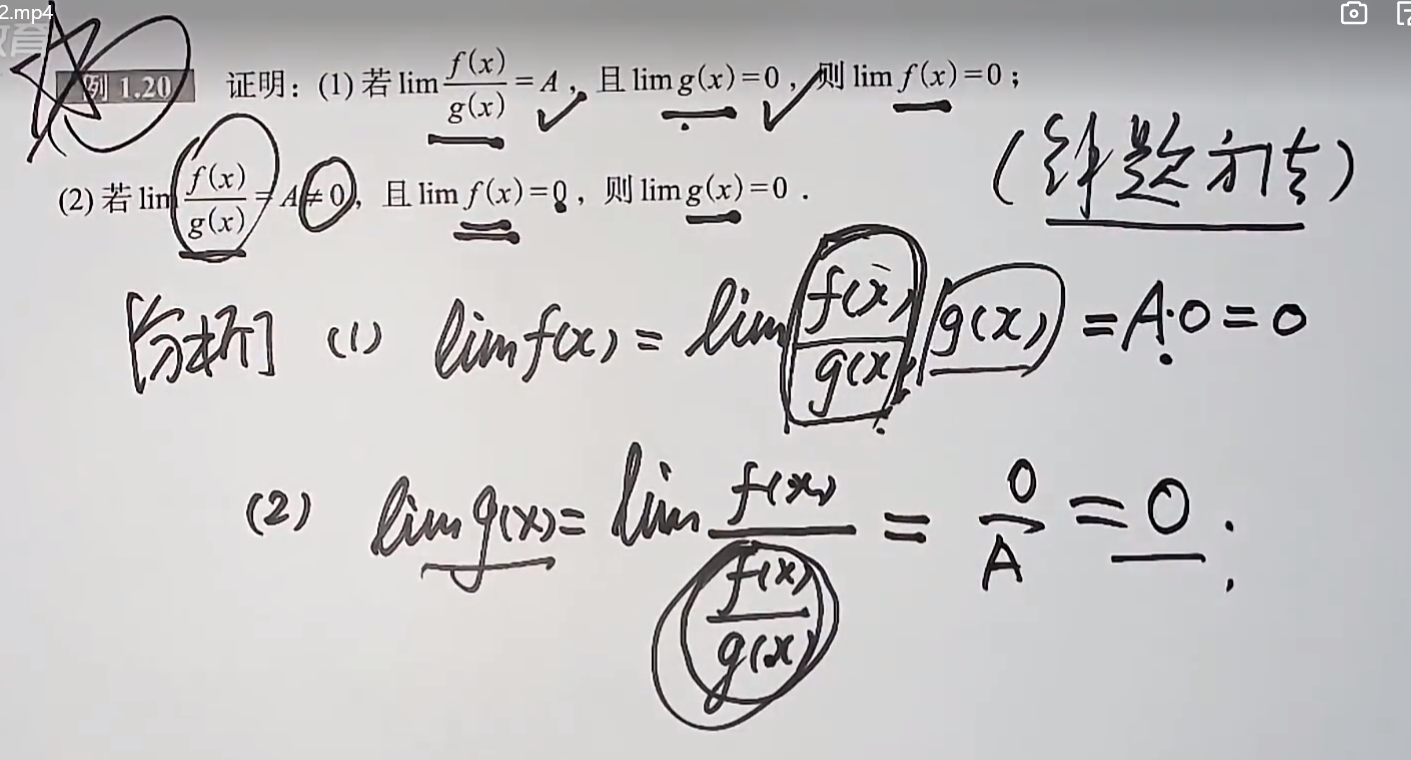 2.mp4
教育
例 1.20 证明：(1) 若 lim f(x)/g(x) = A，且 lim g(x)=0，则 lim f(x)=0；
(2) 若 lim f(x)/g(x) = A≠0，且 lim f(x)=0，则 lim g(x)=0．
(解题方法)
[分析] (1) lim f(x) = lim f(x)/g(x) · g(x) = A·0 = 0
(2) lim g(x) = lim f(x)/(f(x)/g(x)) = 0/A = 0；